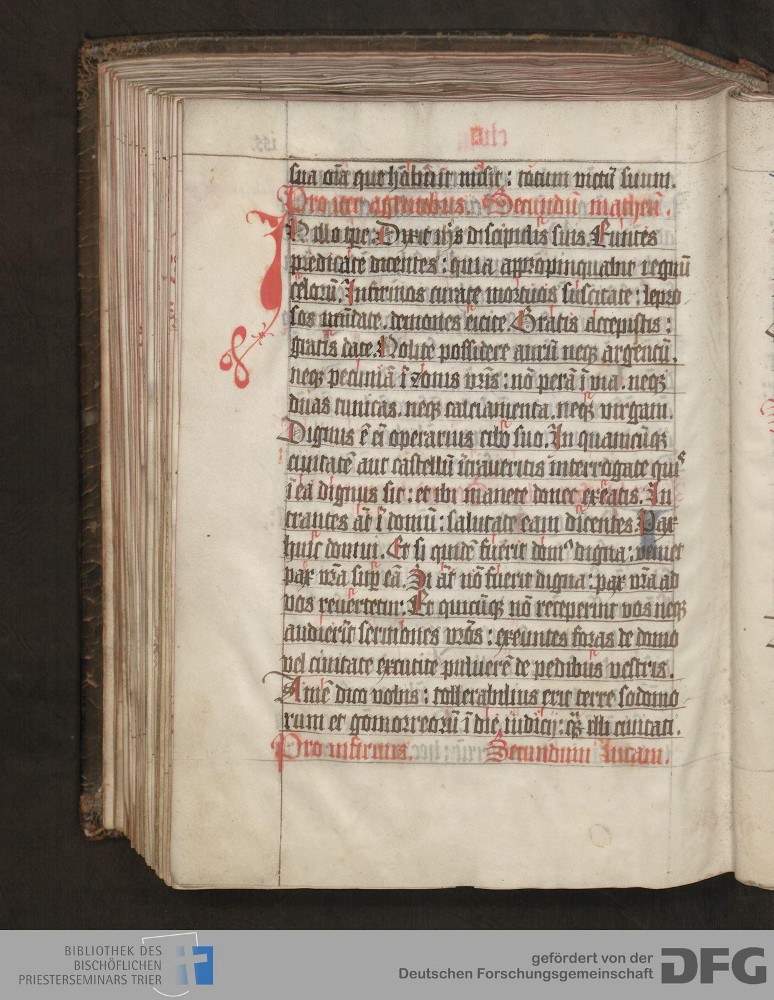 sua oīa que habuit misit : totum victū suum.
Pro iter agentibus. Secundū matheū.
In illo tpe. Dixit ihs discipulis suis. Euntes
predicate dicentes : quia appropinquabit regnū
celorū. Infirmos curate mortuos suscitate : lepro
sos mūdate. demones eicite. Gratis accepistis :
gratis date. Nolite possidere aurū neqz argentū.
neqz pecuniā ī zonis vris : nō perā ī via. neqz
duas tunicas. neqz calciamenta. neqz virgam.
Dignus ē ei operarius cibo suo. In quamcūqz
ciuitatē aut castellū ītraueritis interrogate quis
ī ea dignus sit : et ibi manete donec exeatis. In
trantes at ī domū : salutate eam dicentes. Pax
huic domui. Et si quidē fuerit dom9 digna : veniet
pax vra sup eā. Si at nō fuerit digna : pax vra ad
vos reuertetur. Et quicūqz nō receperint vos neqz
audierīt sermones vros : exeuntes foras de domo
vel ciuitate excutite puluerē de pedibus vestris.
Amē dico vobis : tollerabilius erit terre sodomo
rum et gomorreorū ī die iudicij : qz illi ciuitati.
Pro infirmis. Secundum lucam.
BIBLIOTHEK DES
BISCHÖFLICHEN
PRIESTERSEMINARS TRIER
gefördert von der
Deutschen Forschungsgemeinschaft
DFG